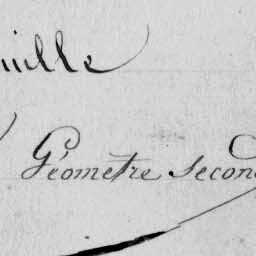 uille
Géometre secon